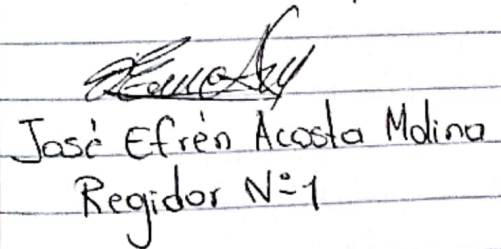 José Efrén Acosta Molina
Regidor Nº1